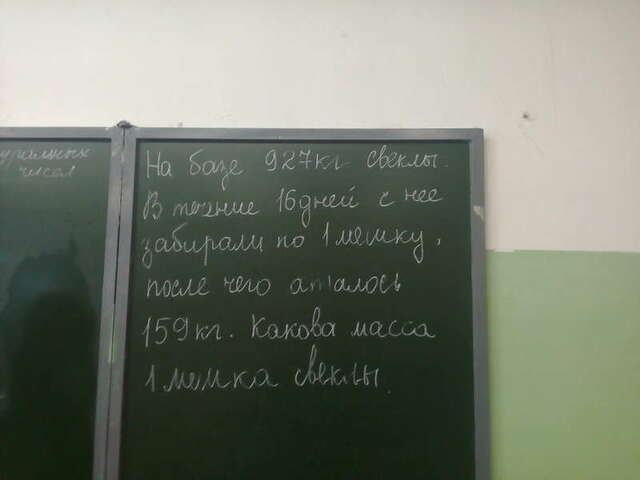 уральных
чисел
На базе 927кг свеклы.
В течение 16 дней с нее
забирали по 1 мешку,
после чего аталось
159кг. Какова масса
1 мешка свеклы.